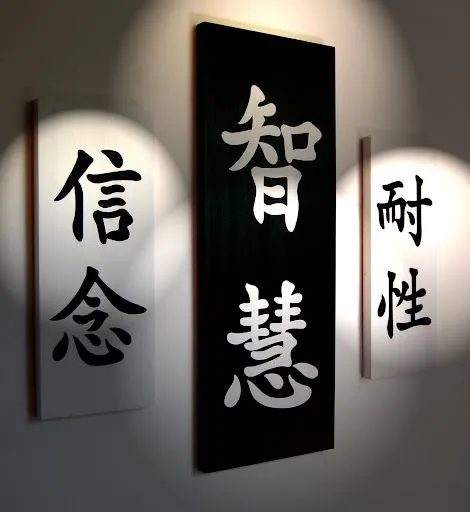 信念
智慧
耐性